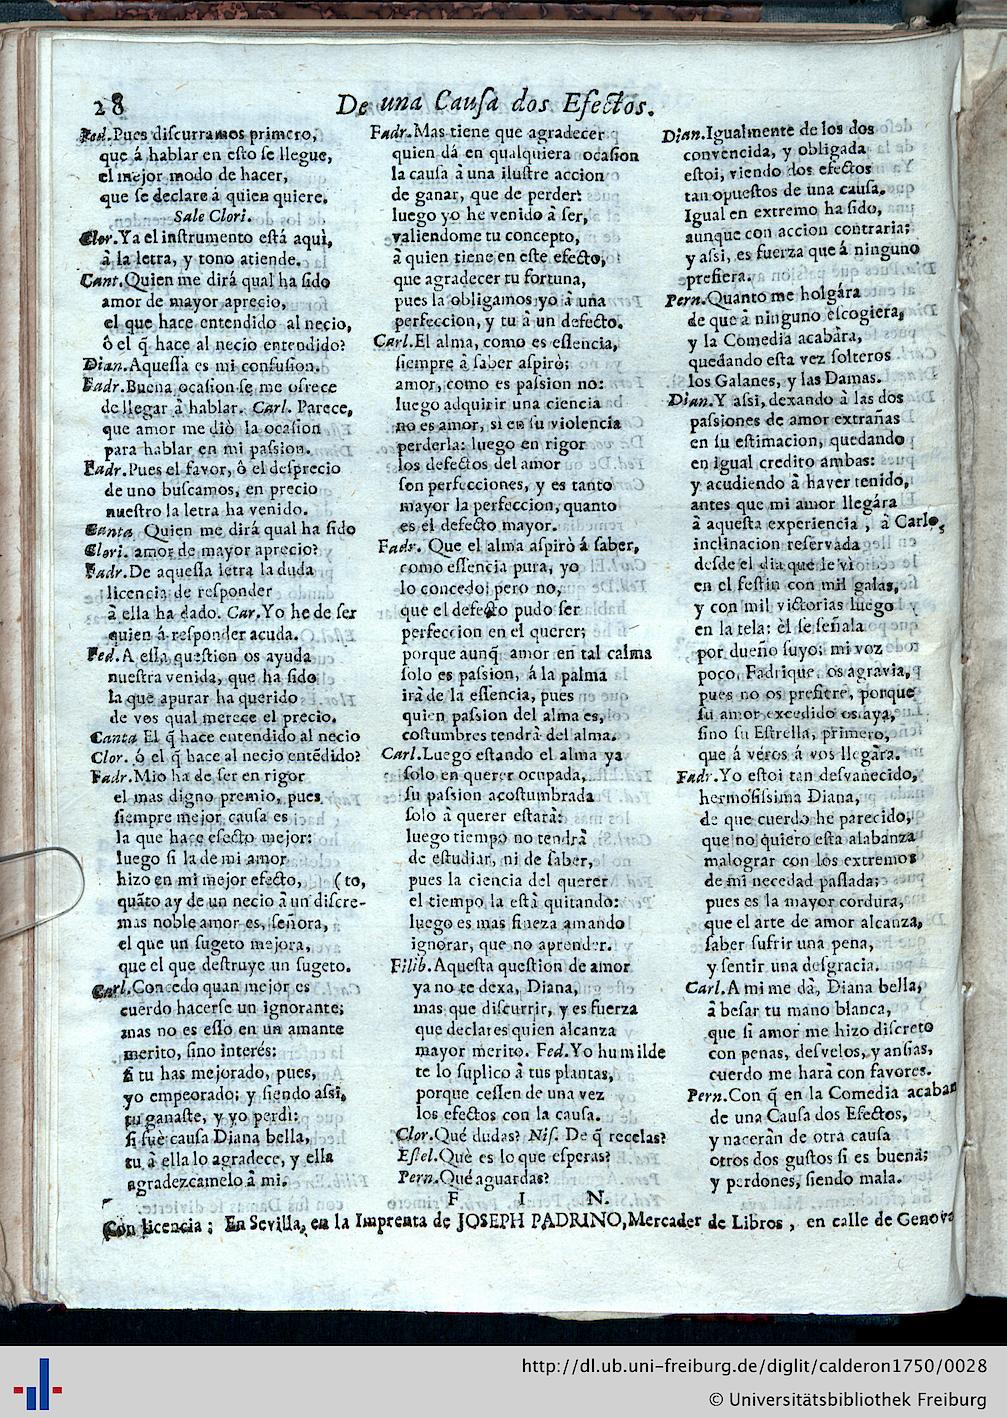 28
De una Causa dos Efectos.
Fed.Pues discurramos primero,
que á hablar en esto se llegue,
el mejor modo de hacer,
que se declare á quien quiere.
Sale Clori.
Clor.Ya el instrumento està aqui,
à la letra, y tono atiende.
Cant.Quien me dirá qual ha sido
amor de mayor aprecio,
el que hace entendido al necio,
ò el q̃ hace al necio entendido?
Dian.Aquessa es mi confusion.
Fadr.Buena ocasion se me ofrece
de llegar à hablar. Carl. Parece,
que amor me diò la ocasion
para hablar en mi passion.
Fadr.Pues el favor, ò el desprecio
de uno buscamos, en precio
nuestro la letra ha venido.
Canta Quien me dirá qual ha sido
Clori. amor de mayor aprecio?
Fadr.De aquessa letra la duda
licencia de responder
à ella ha dado. Car.Yo he de ser
quien á responder acuda.
Fed.A essa question os ayuda
nuestra venida, que ha sido
la que apurar ha querido
de vos qual merece el precio.
Canta El q̃ hace entendido al necio
Clor. ò el q̃ hace al necio entẽdido?
Fadr.Mio ha de ser en rigor
el mas digno premio, pues
siempre mejor causa es
la que hace efecto mejor:
luego si la de mi amor
hizo en mi mejor efecto, (to,
quãto ay de un necio à un discre-
mas noble amor es, señora,
el que un sugeto mejora,
que el que destruye un sugeto.
Carl.Concedo quan mejor es
cuerdo hacerse un ignorante;
mas no es esso en un amante
merito, sino interés:
si tu has mejorado, pues,
yo empeorado; y siendo assi,
tu ganaste, y yo perdi:
si fuè causa Diana bella,
tu à ella lo agradece, y ella
agradezcamelo à mi.
Fadr.Mas tiene que agradecer
quien dá en qualquiera ocasion
la causa à una ilustre accion
de ganar, que de perder:
luego yo he venido à ser,
valiendome tu concepto,
à quien tiene en este efecto,
que agradecer tu fortuna,
pues la obligamos yo à una
perfeccion, y tu à un defecto.
Carl.El alma, como es essencia,
siempre à saber aspirò;
amor, como es passion no:
luego adquirir una ciencia
no es amor, si en su violencia
perderla: luego en rigor
los defectos del amor
son perfecciones, y es tanto
mayor la perfeccion, quanto
es el defecto mayor.
Fadr. Que el alma aspirò á saber,
como essencia pura, yo
lo concedo; pero no,
que el defecto pudo ser
perfeccion en el querer;
porque aunq̃ amor en tal calma
solo es passion, á la palma
irá de la essencia, pues
quien passion del alma es,
costumbres tendrà del alma.
Carl.Luego estando el alma ya
solo en querer ocupada,
su passion acostumbrada
solo à querer estarà:
luego tiempo no tendrà
de estudiar, ni de saber,
pues la ciencia del querer
el tiempo la està quitando:
luego es mas fineza amando
ignorar, que no aprender.
Filib.Aquesta question de amor
ya no te dexa, Diana,
mas que discurrir, y es fuerza
que declares quien alcanza
mayor merito. Fed.Yo humilde
te lo suplico à tus plantas,
porque cessen de una vez
los efectos con la causa.
Clor.Qué dudas? Nis. De q̃ recelas?
Estel.Què es lo que esperas?
Pern.Qué aguardas?
Dian.Igualmente de los dos
convencida, y obligada
estoi, viendo dos efectos
tan opuestos de una causa.
Igual en extremo ha sido,
aunque con accion contraria;
y assi, es fuerza que á ninguno
prefiera.
Pern.Quanto me holgára
de que à ninguno escogiera,
y la Comedia acabàra,
quedando esta vez solteros
los Galanes, y las Damas.
Dian.Y assi, dexando à las dos
passiones de amor extrañas
en su estimacion, quedando
en igual credito ambas:
y acudiendo à haver tenido,
antes que mi amor llegára
à aquesta experiencia, à Carlos,
inclinacion reservada
desde el dia que le vi
en el festin con mil galas,
y con mil victorias luego
en la tela: èl se señala
por dueño suyo; mi voz
poco, Fadrique, os agravia,
pues no os prefiere, porque
su amor excedido os aya,
sino su Estrella, primero,
que á veros á vos llegàra.
Fadr.Yo estoi tan desvanecido,
hermosissima Diana,
de que cuerdo he parecido,
que no quiero esta alabanza
malograr con los extremos
de mi necedad passada;
pues es la mayor cordura,
que el arte de amor alcanza,
saber sufrir una pena,
y sentir una desgracia.
Carl.A mi me dà, Diana bella,
à besar tu mano blanca,
que si amor me hizo discreto
con penas, desvelos, y ansias,
cuerdo me harà con favores.
Pern.Con q̃ en la Comedia acaban
de una Causa dos Efectos,
y naceràn de otra causa
otros dos gustos si es buena;
y perdones, siendo mala.
F I N.
Con licencia: En Sevilla, en la Imprenta de JOSEPH PADRINO, Mercader de Libros, en calle de Genova
http://dl.ub.uni-freiburg.de/diglit/calderon1750/0028
© Universitätsbibliothek Freiburg